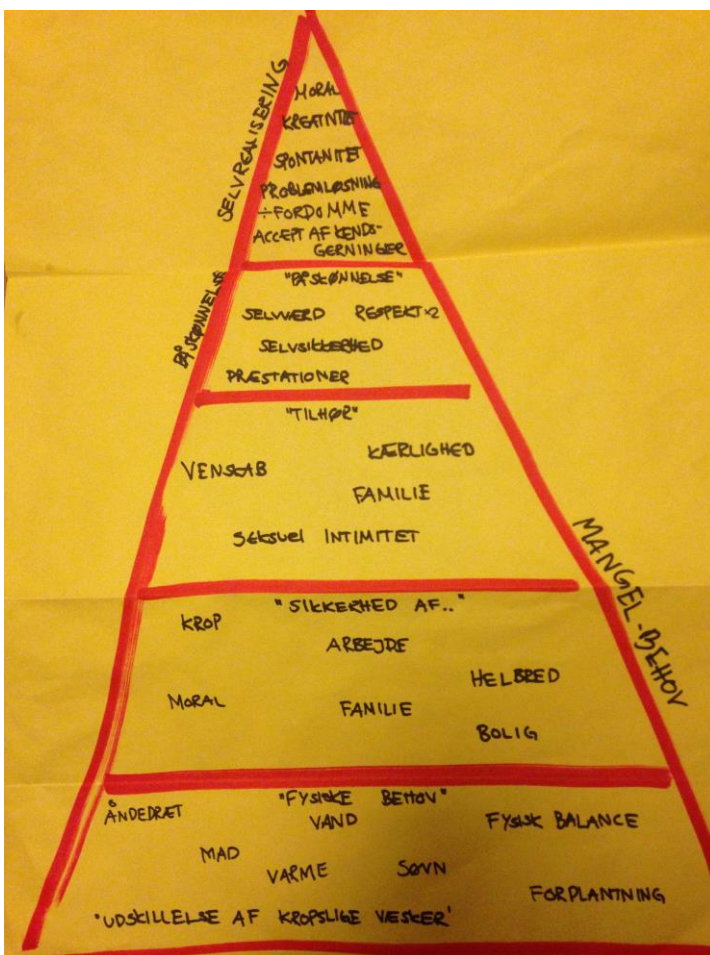 SELVREALISERING
MORAL
KREATIVITET
SPONTANITET
PROBLEMLØSNING
÷FORDOMME
ACCEPT AF KENDS-
GERNINGER
PÅSKØNNELSE
"PÅSKØNNELSE"
SELVVÆRD RESPEKT x2
SELVSIKKERHED
PRÆSTATIONER
"TILHØR"
KÆRLIGHED
VENSKAB
FAMILIE
Seksuel INTIMITET
MANGEL-BEHOV
"SIKKERHED AF.."
KROP
ARBEJDE
HELBRED
MORAL
FAMILIE
BOLIG
"FYSISKE BEHOV"
ÅNDEDRÆT
VAND
FYSISK BALANCE
MAD
VARME
SØVN
FORPLANTNING
'UDSKILLELSE AF KROPSLIGE VÆSKER'